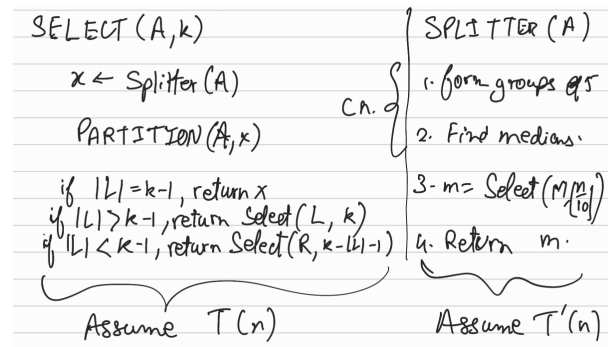 SELECT (A,k)
x ← Splitter (A)
PARTITION (A,x)
if |L| = k-1, return x
if |L| > k-1, return Select (L, k)
if |L| < k-1, return Select (R, k-|L|-1)
Assume T(n)
cn.
SPLITTER (A)
1. form groups of 5
2. Find medians.
3- m = Select (M, [n/10])
4. Return m.
Assume T'(n)